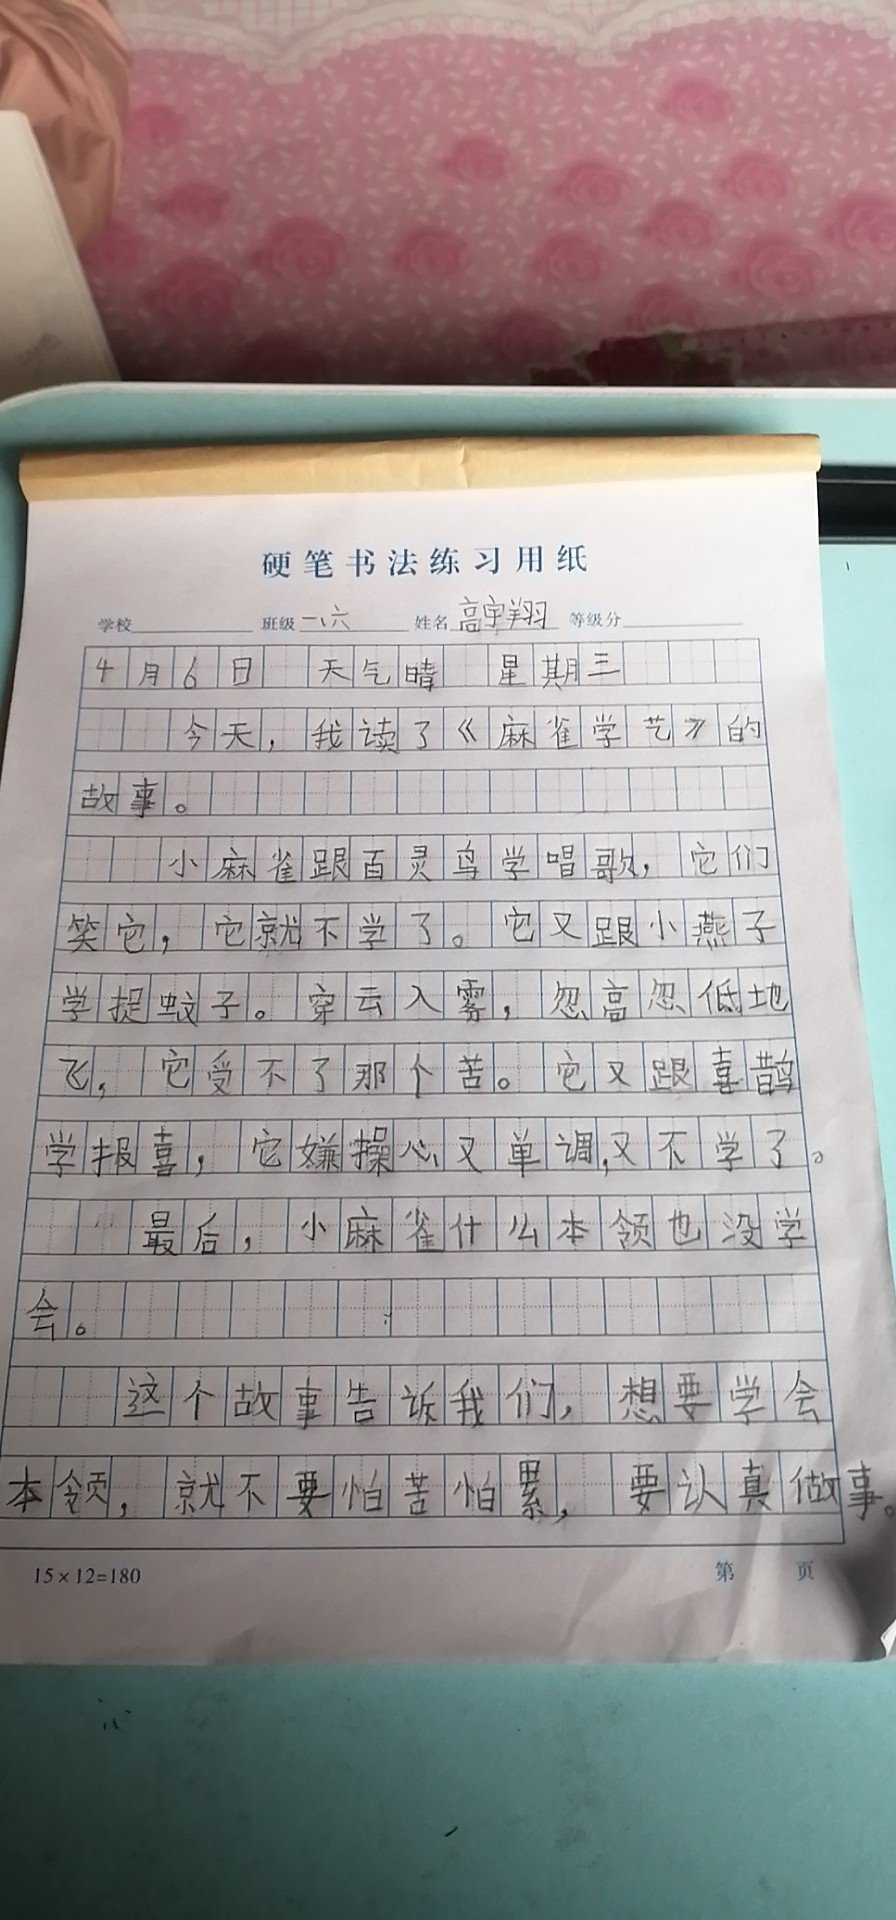 硬笔书法练习用纸
学校 班级 一、六 姓名 高宇翔 等级分
4月6日 天气晴 星期三
今天，我读了《麻雀学艺》的
故事。
小麻雀跟百灵鸟学唱歌，它们
笑它，它就不学了。它又跟小燕子
学捉蚊子。穿云入雾，忽高忽低地
飞，它受不了那个苦。它又跟喜鹊
学报喜，它嫌操心又单调，又不学了。
最后，小麻雀什么本领也没学
会。
这个故事告诉我们，想要学会
本领，就不要怕苦怕累，要认真做事。
15×12=180 第 页